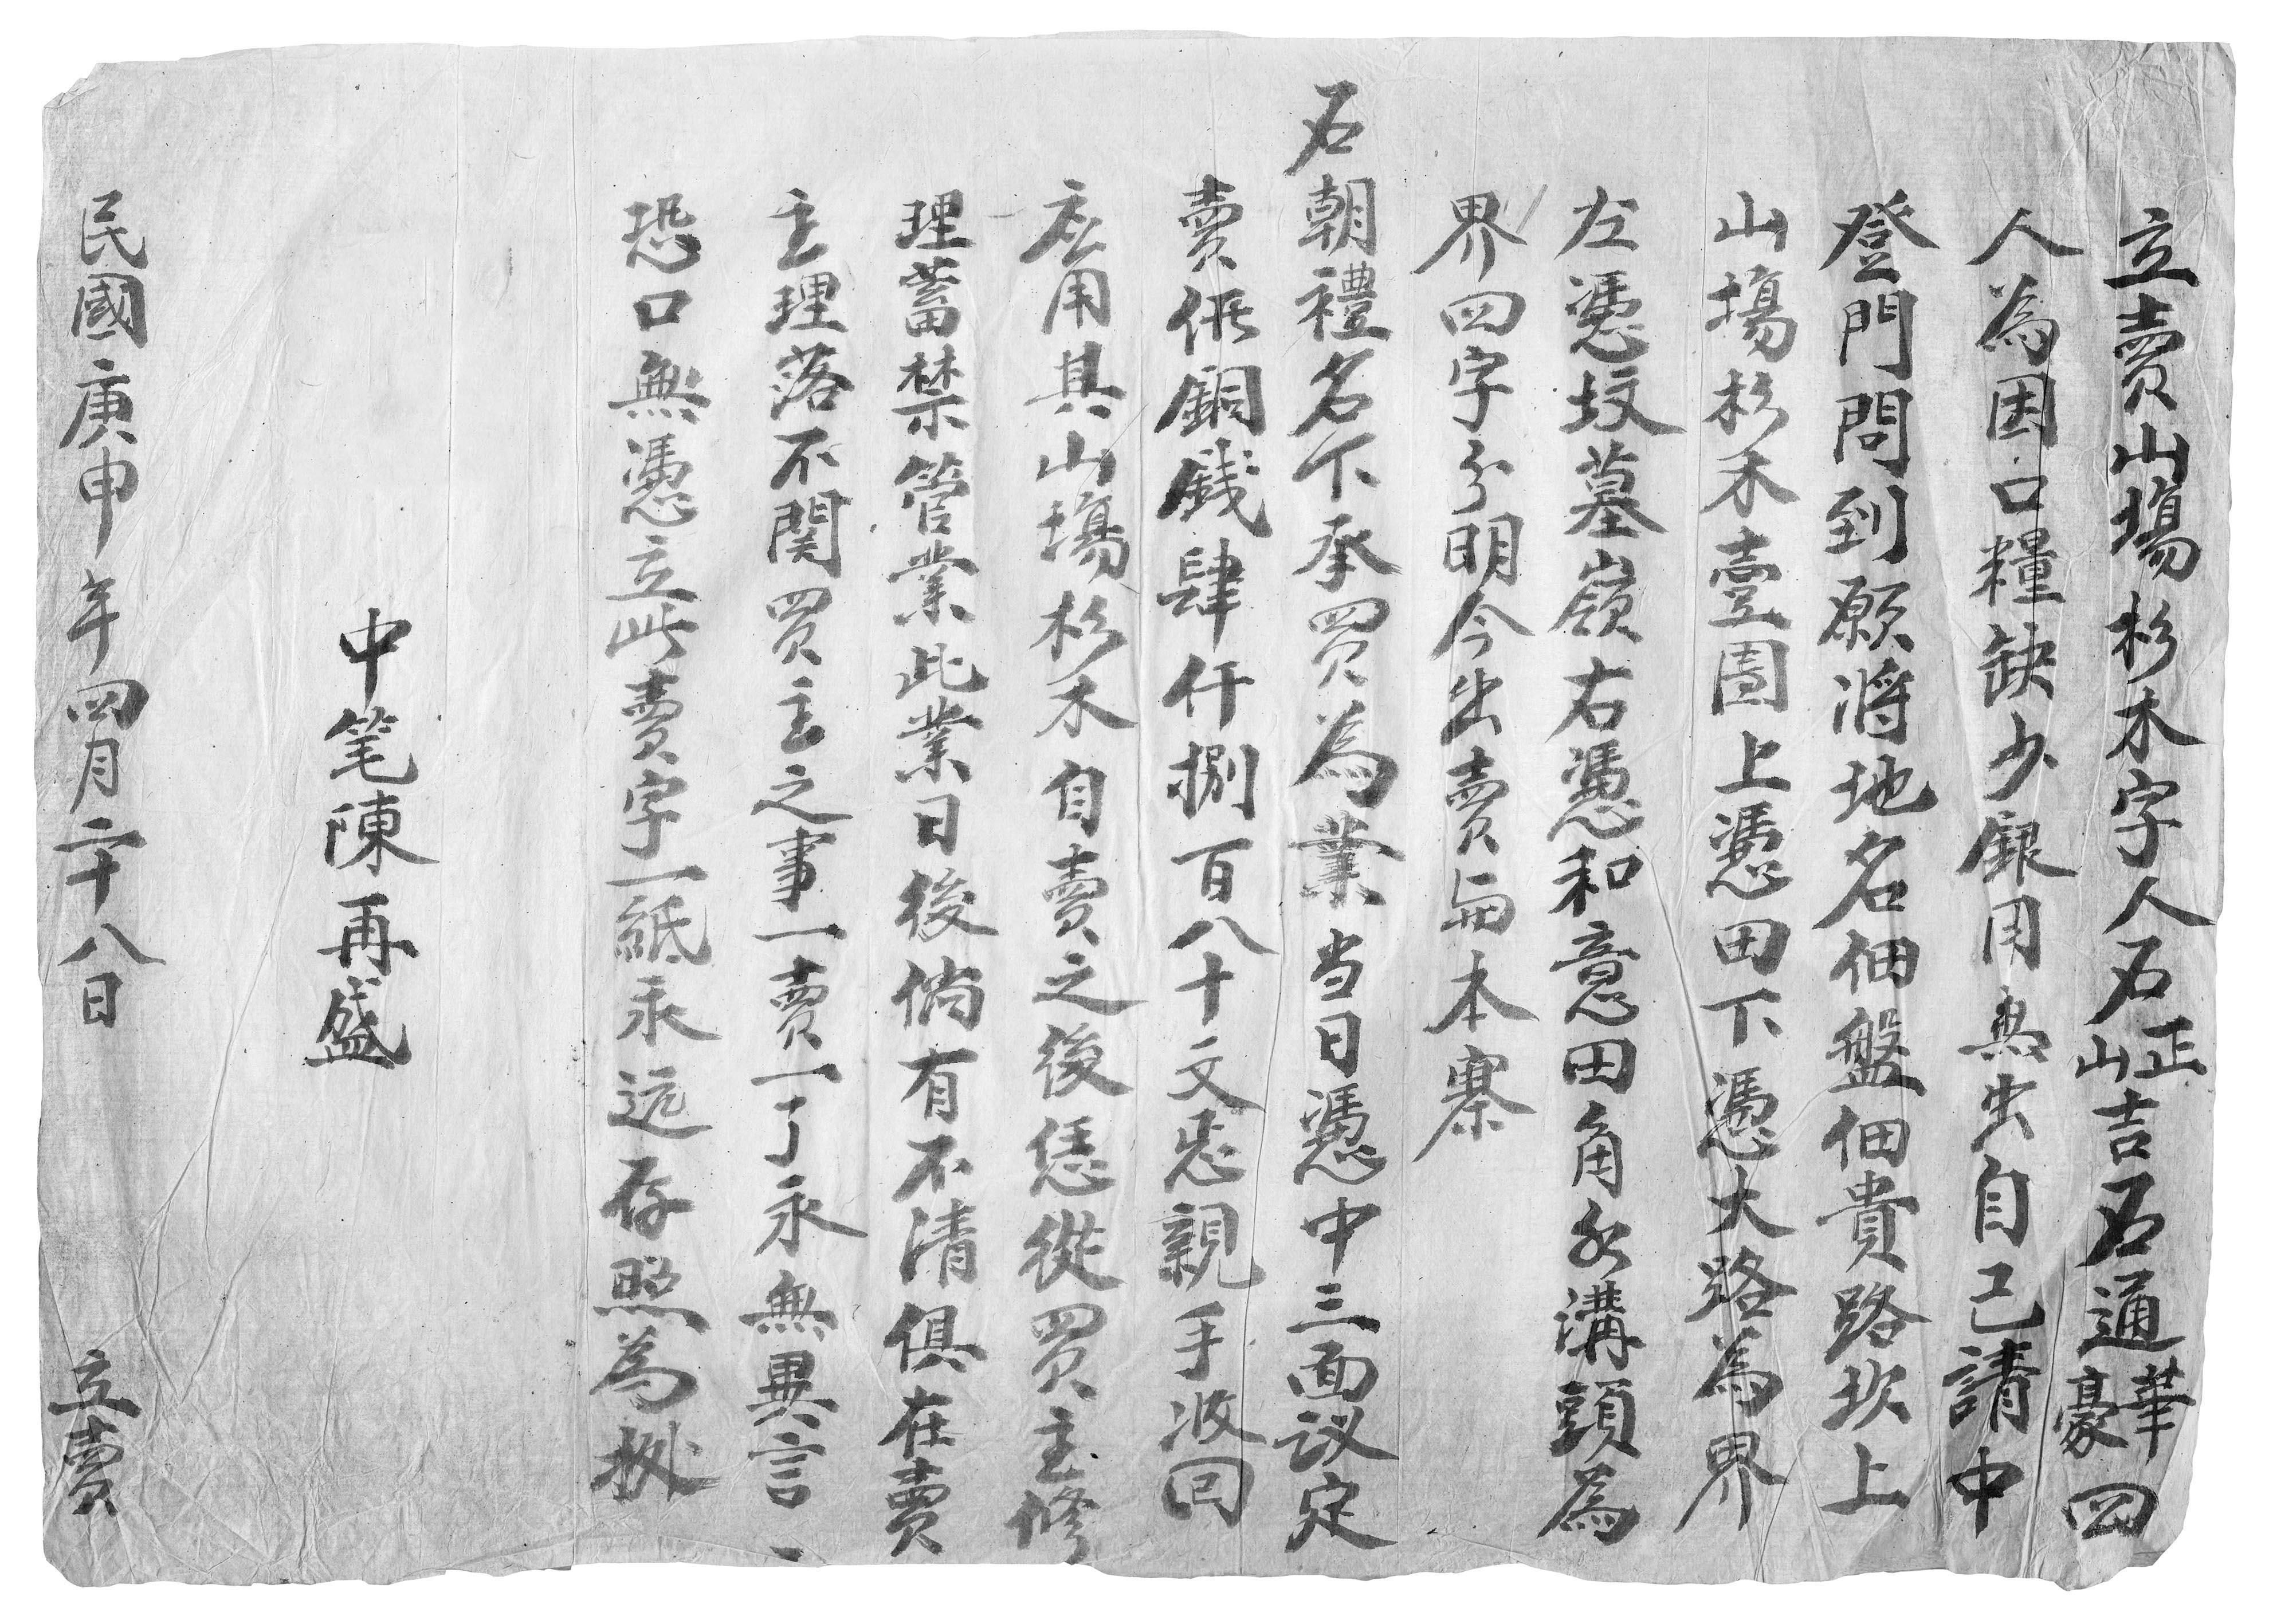 立賣山塲杉木字人石正山吉石通華豪四
人為因口糧缺少銀用無出自己請中
登門問到願將地名佃盤佃貴路坎上
山塲杉木壹團上憑田下憑大路為界
左憑坟墓嶺右憑和意田角水溝頭為
界四字分明今出賣與本寨
石朝禮名下承買為業当日憑中三面议定
賣價銅銭肆仟捌百八十文悉親手收回
應用其山塲杉木自賣之後恁從買主修
理蓄禁管業此業日後倘有不清俱在賣
主理落不関買主之事一賣一了永無異言、
恐口無憑立此賣字一紙永远存照為據
中笔陳再盛
民國庚申年四月二十八日 立賣